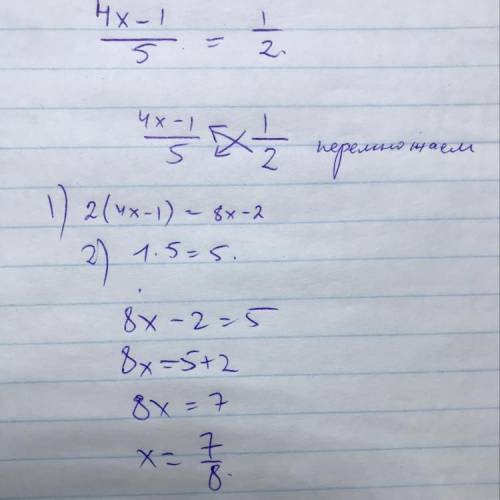 4x-1/5 = 1/2.
4x-1/5 1/2 перемножаем
1) 2(4x-1) = 8x-2
2) 1·5=5.
8x-2=5
8x=5+2
8x=7
x=7/8.